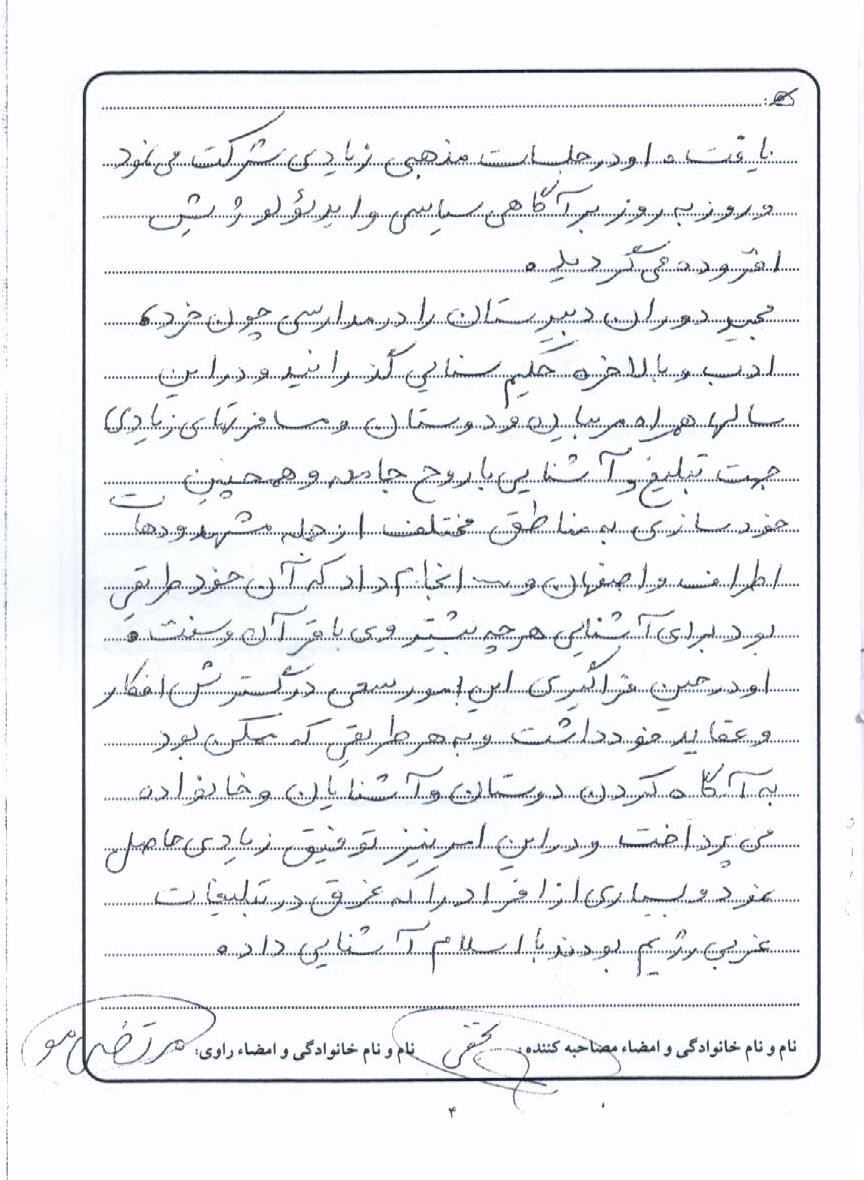 یافت. او در جلسات مذهبی زیادی شرکت می نمود
و روز به روز بر آگاهی سیاسی و ایدئولوژیش
افزوده می گردید.
مجید دوران دبیرستان را در مدارسی چون خرد،
ادب و بالاخره حکیم سنایی گذرانید و در این
سالها همراه مربیان و دوستان و مسافرتهای زیادی
جهت تبلیغ و آشنایی با روح جامعه و همچنین
خودسازی به مناطق مختلف از جمله مشهد و دهات
اطراف و اصفهان و ... انجام داد که آن خود طریقی
بود برای آشنایی هر چه بیشتر وی با قرآن و سنت.
او در حین فراگیری این امور سعی در گسترش افکار
و عقاید خود داشت و به هر طریقی که ممکن بود
به آگاه کردن دوستان و آشنایان و خانواده
می پرداخت و در این امر نیز توفیق زیادی حاصل
نمود و بسیاری از افراد را که غرق در تبلیغات
غربی رژیم بودند با اسلام آشنایی داد.
نام و نام خانوادگی و امضاء مصاحبه کننده: نام و نام خانوادگی و امضاء راوی: مرتضی
۴